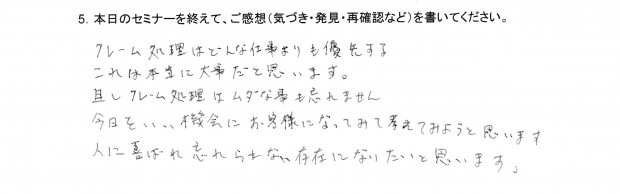 5. 本日のセミナーを終えて、ご感想（気づき・発見・再確認など）を書いてください。
クレーム処理はどんな仕事よりも優先する
これは本当に大事だと思います。
且しクレーム処理はムダな事も忘れません
今日をいい機会にお客様になってみて考えてみようと思います
人に喜ばれ忘れられない存在になりたいと思います。